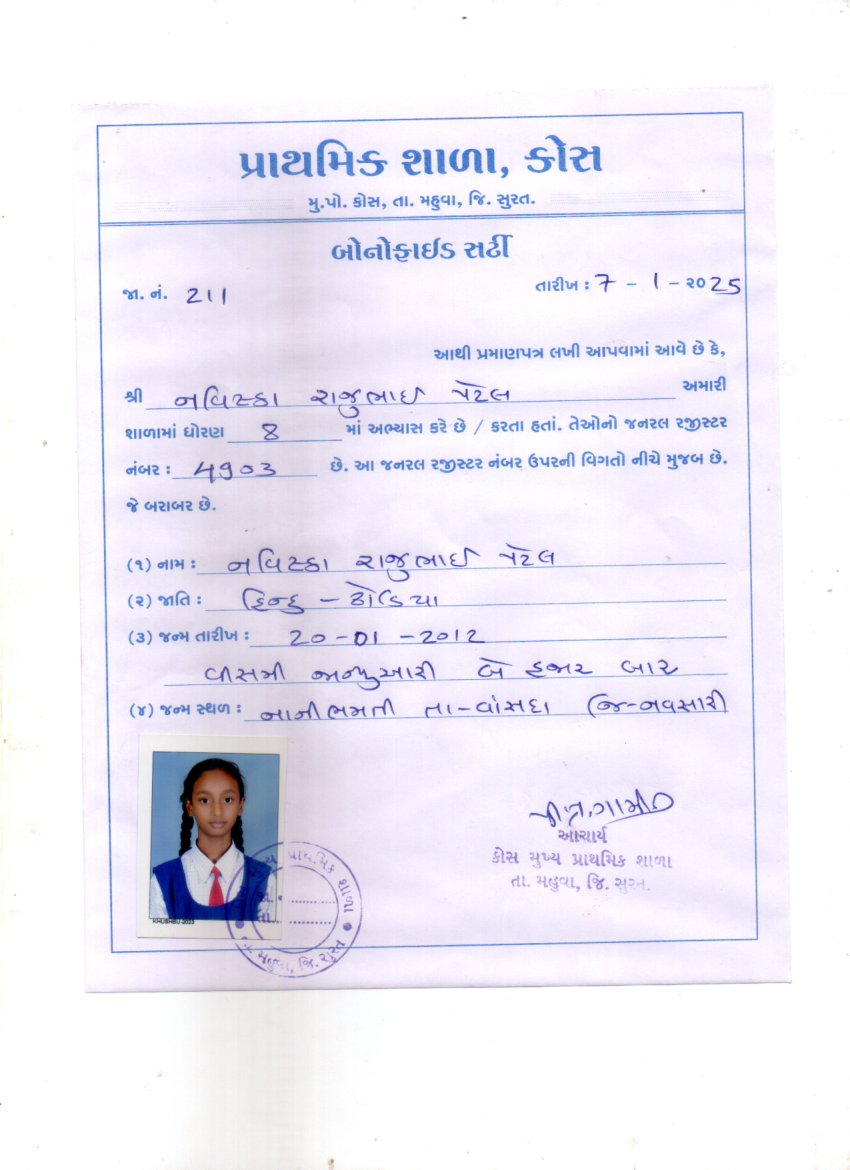 પ્રાથમિક શાળા, કોસ
મુ.પો. કોસ, તા. મહુવા, જિ. સુરત.
બોનોફાઈડ સર્ટી
જા. નં. 211
તારીખ : 7 - 1 - ૨૦25
આથી પ્રમાણપત્ર લખી આપવામાં આવે છે કે,
શ્રી નવિષ્કા રાજુભાઈ પટેલ અમારી
શાળામાં ધોરણ 8 માં અભ્યાસ કરે છે / કરતા હતાં. તેઓનો જનરલ રજીસ્ટર
નંબર : 4903 છે. આ જનરલ રજીસ્ટર નંબર ઉપરની વિગતો નીચે મુજબ છે.
જે બરાબર છે.
(૧) નામ : નવિષ્કા રાજુભાઈ પટેલ
(૨) જાતિ : હિન્દુ - ઢોડિયા
(૩) જન્મ તારીખ : 20-01-2012
વીસમી જાન્યુઆરી બે હજાર બાર
(૪) જન્મ સ્થળ : નાનીભમતી તા-વાંસદા જિ-નવસારી
આચાર્ય
કોસ મુખ્ય પ્રાથમિક શાળા
તા. મહુવા, જિ. સુરત.
KHUSHBU-2023
પ્રાથમિક શાળા
જા.
તા.
મહુવા, જિ. સુરત